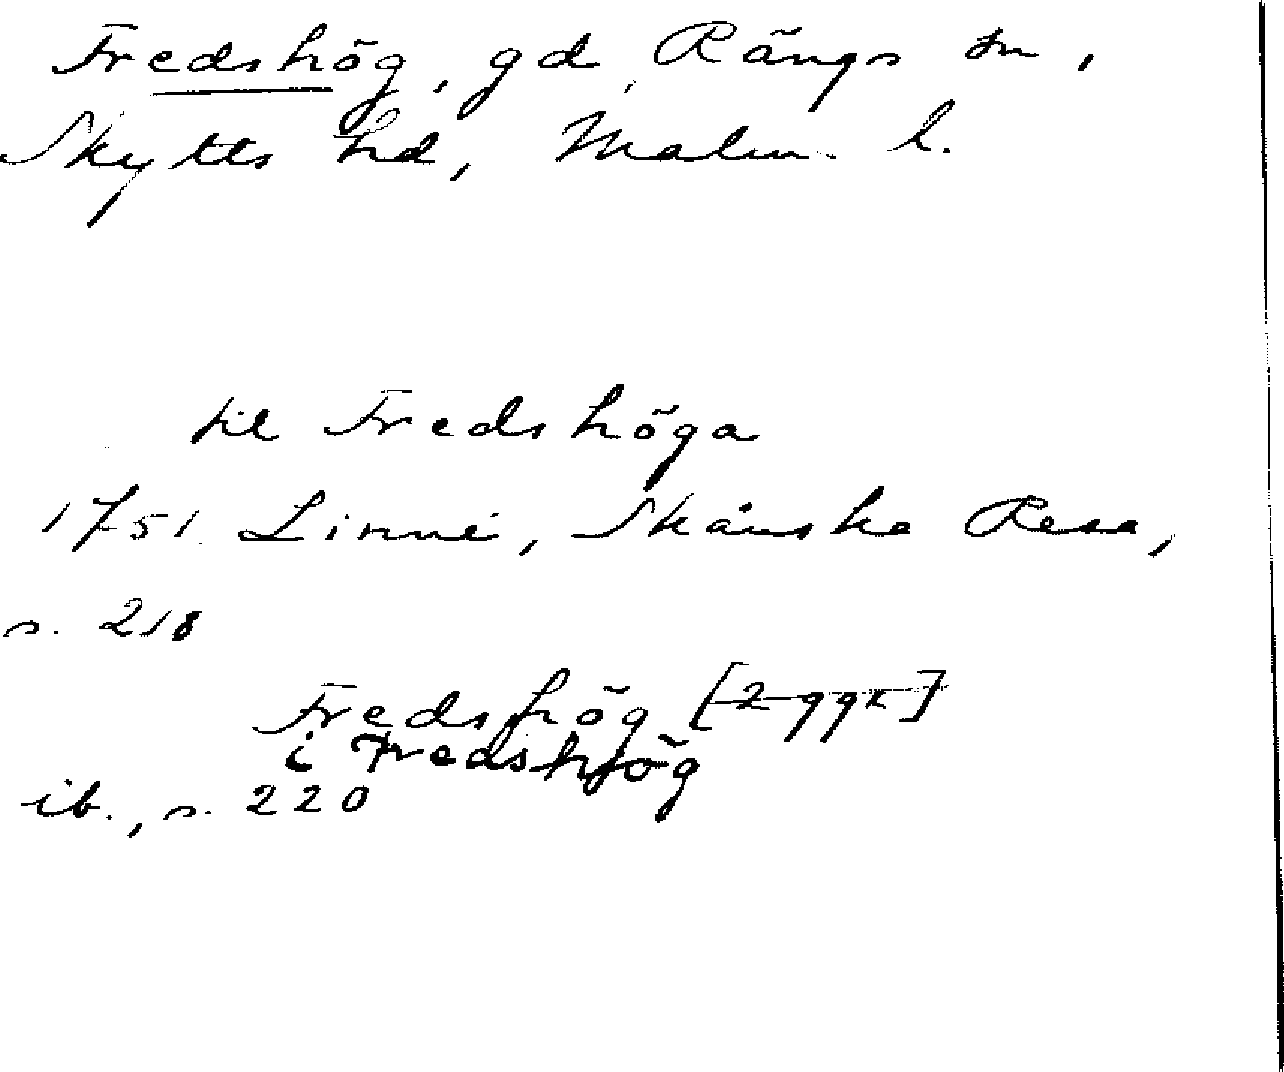 Fredshög, gd, Rängs sn,
Skytts hd, Malm. l.
til Fredshöga
1751 Linné, Skånska Resa,
s. 218
Fredshög [2 ggr]
i Fredshög
ib., s. 220